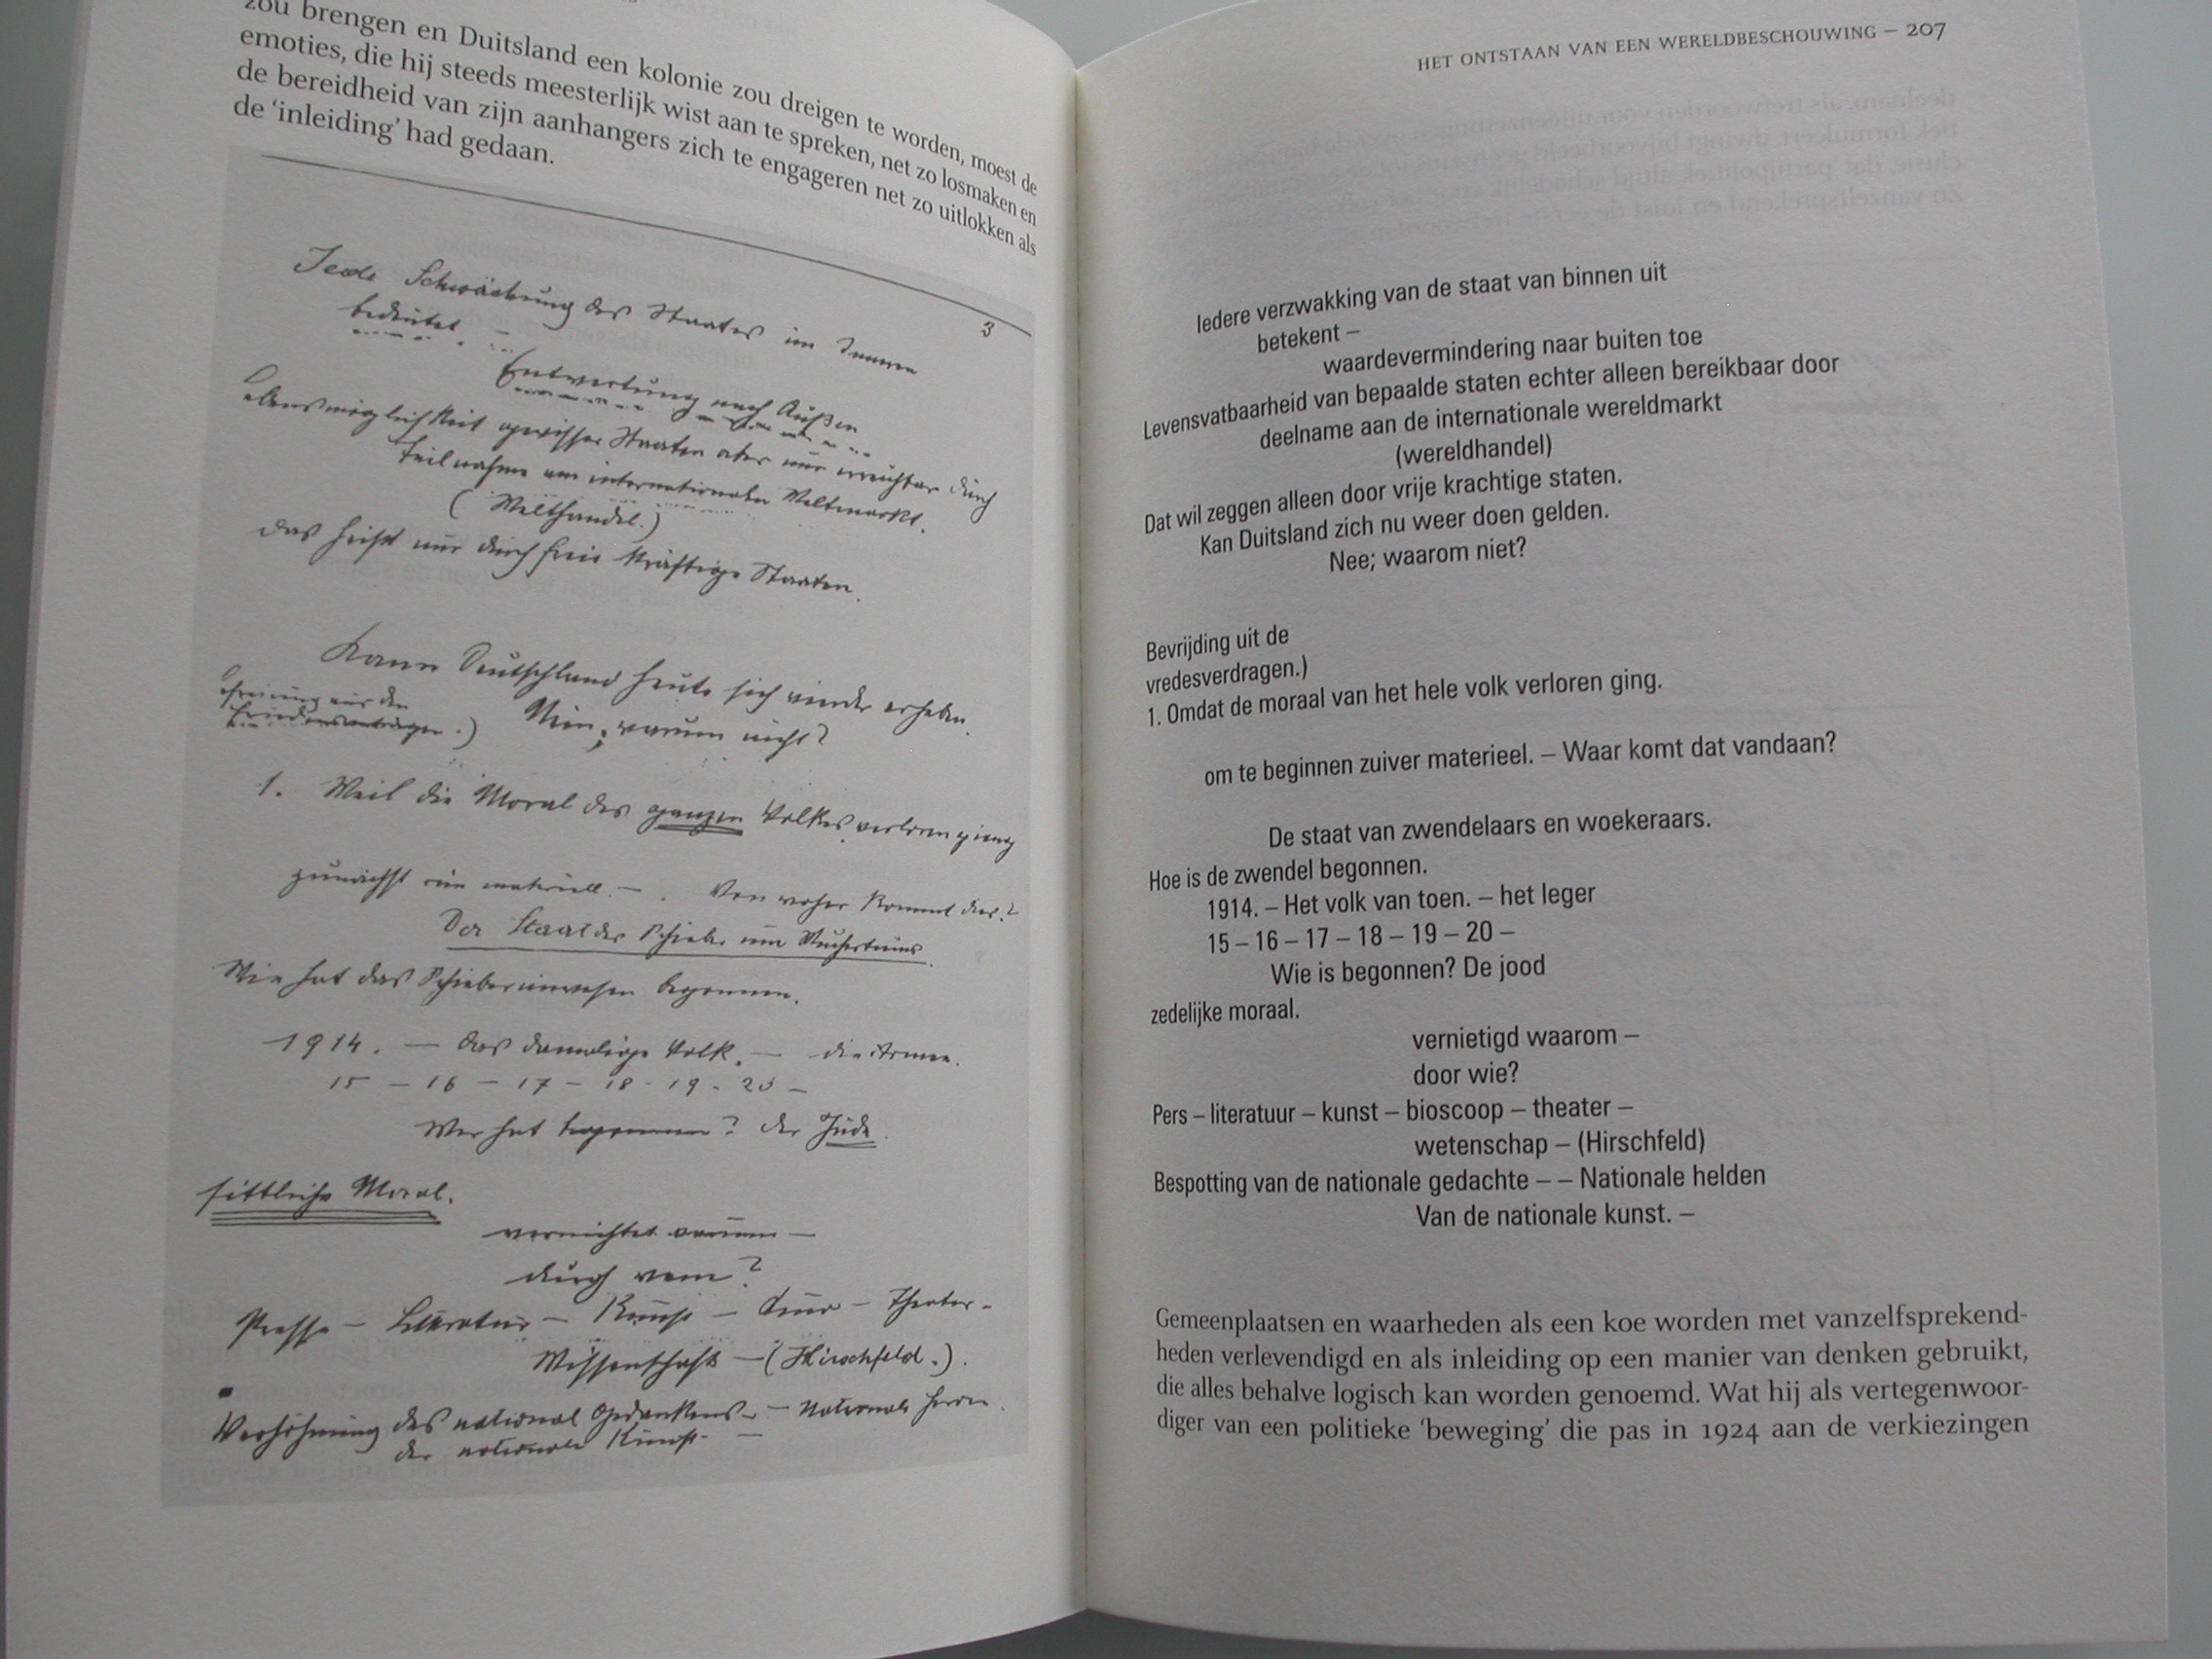 zou brengen en Duitsland een kolonie zou dreigen te worden, moest de
emoties, die hij steeds meesterlijk wist aan te spreken, net zo losmaken en
de bereidheid van zijn aanhangers zich te engageren net zo uitlokken als
de ‘inleiding’ had gedaan.
3
Jede Schwächung des Staates im Innern
bedeutet –
Entwertung nach Außen
Lebensmöglichkeit gewisser Staaten aber nur erreichbar durch
Teilnahme am internationalen Weltmarkt.
(Welthandel.)
das heißt nur durch freie kräftige Staaten.
Kann Deutschland heute sich wieder erheben.
Nein, warum nicht?
Befreiung aus den
Friedensverträgen.)
1. Weil die Moral des ganzen Volkes verloren gieng
zunächst rein materiell. – . Von woher kommt dies?
Der Staat des Schieber und Wuchertums.
Wie hat das Schieberunwesen begonnen.
1914. – das damalige Volk. – die Armee.
15 – 16 – 17 – 18 - 19 - 20 –
Wer hat begonnen? der Jude.
sittliche Moral.
vernichtet warum –
durch wem?
Presse – Literatur – Kunst – Kino – Theater -
Wissenschaft – (Hirschfeld.).
Verhöhnung des national Gedankens – – Nationale Heroen.
der nationale Kunst. –
HET ONTSTAAN VAN EEN WERELDBESCHOUWING – 207
Iedere verzwakking van de staat van binnen uit
betekent –
waardevermindering naar buiten toe
Levensvatbaarheid van bepaalde staten echter alleen bereikbaar door
deelname aan de internationale wereldmarkt
(wereldhandel)
Dat wil zeggen alleen door vrije krachtige staten.
Kan Duitsland zich nu weer doen gelden.
Nee; waarom niet?
Bevrijding uit de
vredesverdragen.)
1. Omdat de moraal van het hele volk verloren ging.
om te beginnen zuiver materieel. – Waar komt dat vandaan?
De staat van zwendelaars en woekeraars.
Hoe is de zwendel begonnen.
1914. – Het volk van toen. – het leger
15 – 16 – 17 – 18 – 19 – 20 –
Wie is begonnen? De jood
zedelijke moraal.
vernietigd waarom –
door wie?
Pers – literatuur – kunst – bioscoop – theater –
wetenschap – (Hirschfeld)
Bespotting van de nationale gedachte – – Nationale helden
Van de nationale kunst. –
Gemeenplaatsen en waarheden als een koe worden met vanzelfsprekend-
heden verlevendigd en als inleiding op een manier van denken gebruikt,
die alles behalve logisch kan worden genoemd. Wat hij als vertegenwoor-
diger van een politieke ‘beweging’ die pas in 1924 aan de verkiezingen